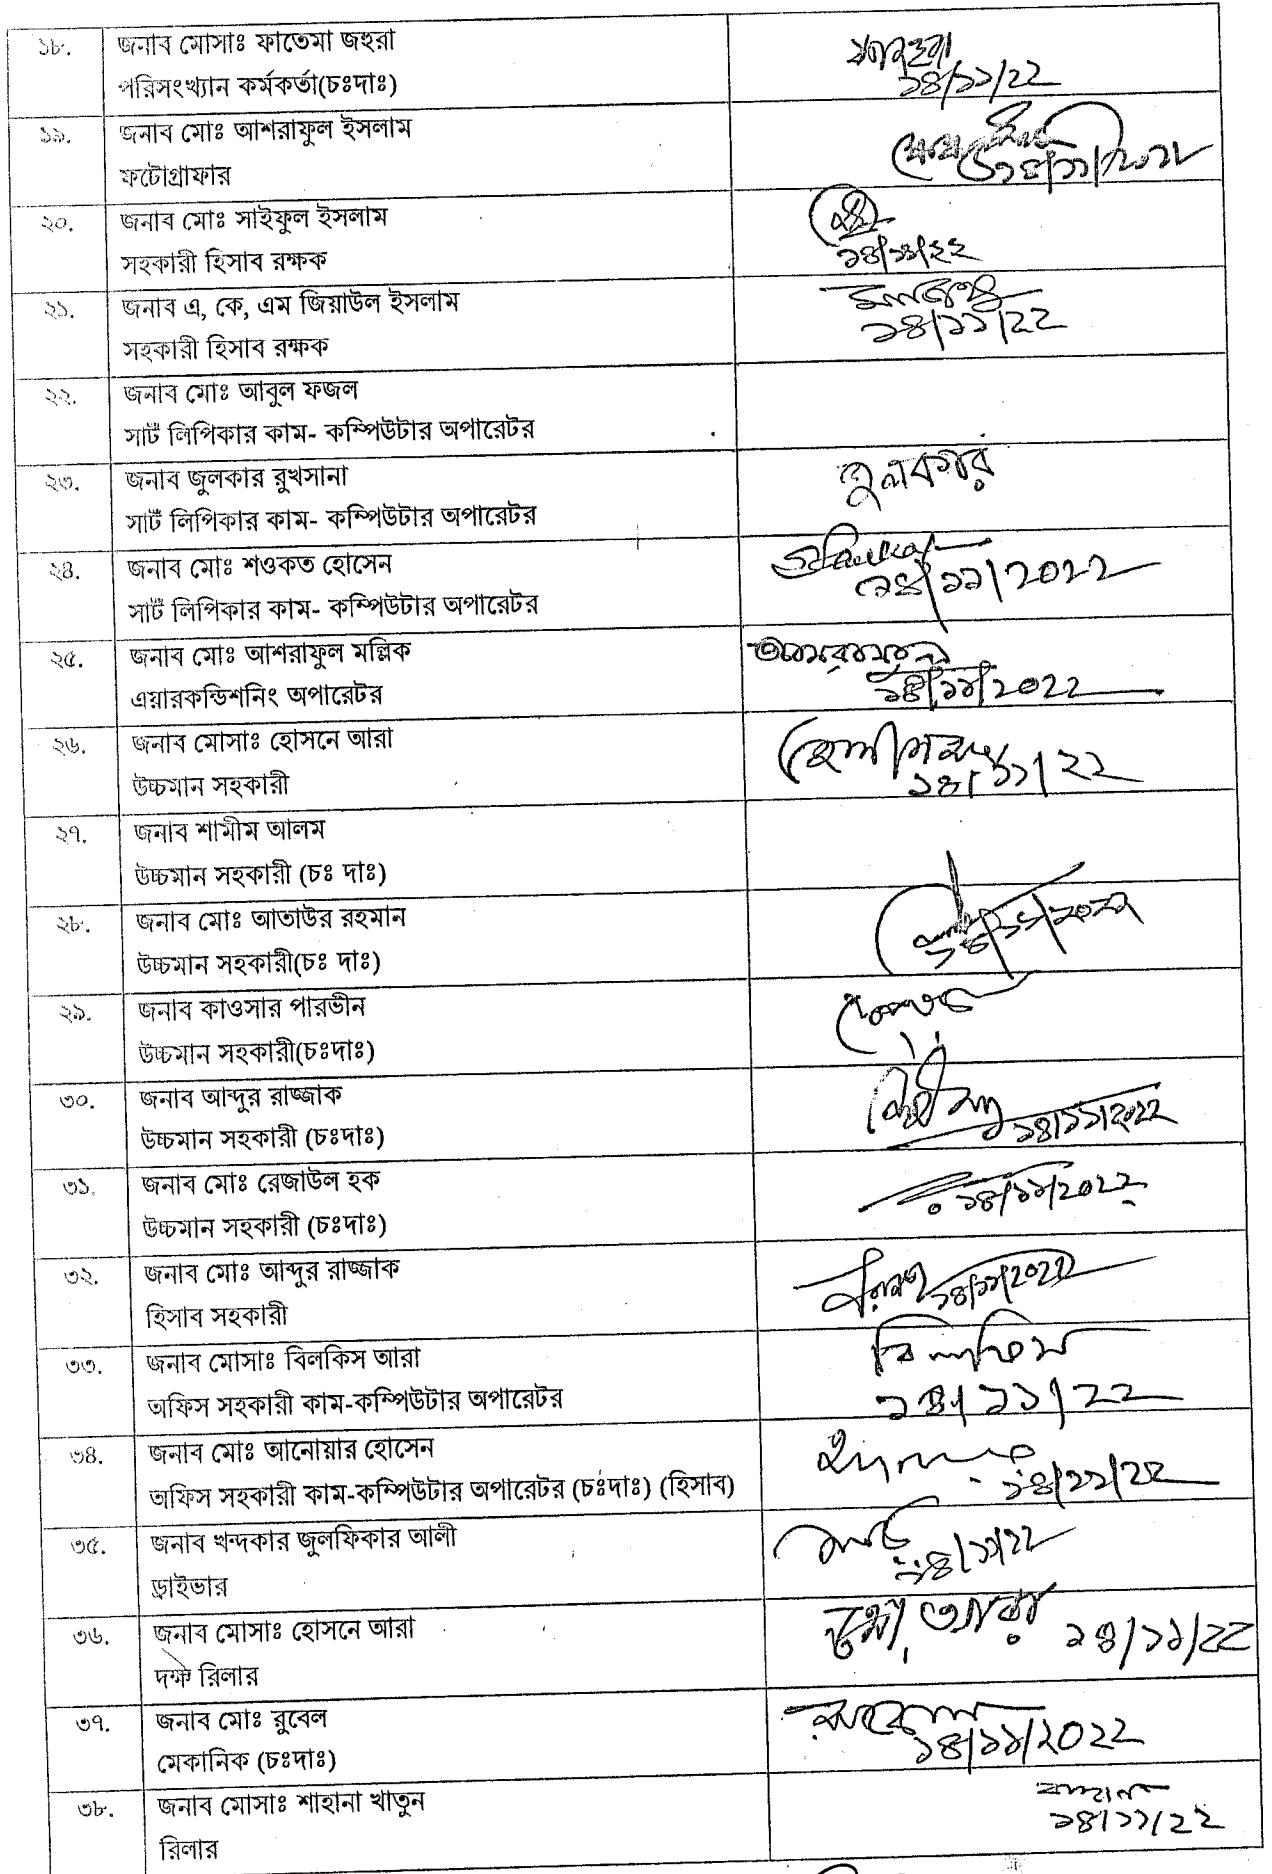 ১৮. জনাব মোসাঃ ফাতেমা জহুরা
পরিসংখ্যান কর্মকর্তা(চঃদাঃ)
১৪/১১/২২
১৯. জনাব মোঃ আশরাফুল ইসলাম
ফটোগ্রাফার
২০. জনাব মোঃ সাইফুল ইসলাম
সহকারী হিসাব রক্ষক
১৪/১১/২২
২১. জনাব এ, কে, এম জিয়াউল ইসলাম
সহকারী হিসাব রক্ষক
১৪/১১/২২
২২. জনাব মোঃ আবুল ফজল
সার্ট লিপিকার কাম- কম্পিউটার অপারেটর
২৩. জনাব জুলকার রুখসানা জুলকার
সার্ট লিপিকার কাম- কম্পিউটার অপারেটর
২৪. জনাব মোঃ শওকত হোসেন
সার্ট লিপিকার কাম- কম্পিউটার অপারেটর
১৪/১১/২০২২
২৫. জনাব মোঃ আশরাফুল মল্লিক
এয়ারকন্ডিশনিং অপারেটর
১৪/১১/২০২২
২৬. জনাব মোসাঃ হোসনে আরা
উচ্চমান সহকারী
১৪/১১/২২
২৭. জনাব শামীম আলম
উচ্চমান সহকারী (চঃ দাঃ)
২৮. জনাব মোঃ আতাউর রহমান
উচ্চমান সহকারী(চঃ দাঃ)
২৯. জনাব কাওসার পারভীন
উচ্চমান সহকারী(চঃদাঃ)
৩০. জনাব আব্দুর রাজ্জাক
উচ্চমান সহকারী (চঃদাঃ)
১৪/১১/২০২২
৩১. জনাব মোঃ রেজাউল হক
উচ্চমান সহকারী (চঃদাঃ)
১৪/১১/২০২২
৩২. জনাব মোঃ আব্দুর রাজ্জাক
হিসাব সহকারী
১৪/১১/২০২২
৩৩. জনাব মোসাঃ বিলকিস আরা বিলকিস
অফিস সহকারী কাম-কম্পিউটার অপারেটর
১৪/১১/২২
৩৪. জনাব মোঃ আনোয়ার হোসেন
অফিস সহকারী কাম-কম্পিউটার অপারেটর (চঃদাঃ) (হিসাব)
১৪/১১/২২
৩৫. জনাব খন্দকার জুলফিকার আলী
ড্রাইভার
১৪/১১/২২
৩৬. জনাব মোসাঃ হোসনে আরা
দক্ষ রিলার
১৪/১১/২২
৩৭. জনাব মোঃ রুবেল
মেকানিক (চঃদাঃ)
১৪/১১/২০২২
৩৮. জনাব মোসাঃ শাহানা খাতুন
রিলার
১৪/১১/২২